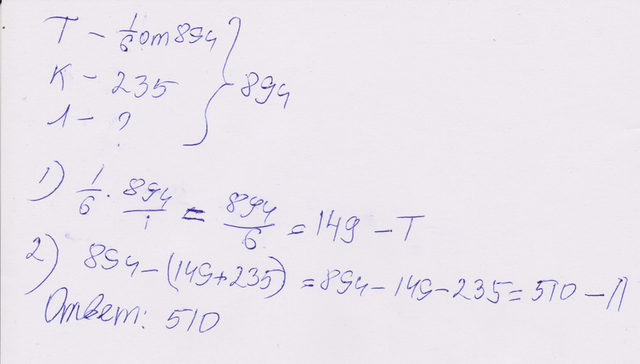 Т - 1/6 от 894
К - 235 } 894
Л - ?
1) 1/6 · 894/1 = 894/6 = 149 - Т
2) 894 - (149+235) = 894 - 149 - 235 = 510 - Л
Ответ: 510